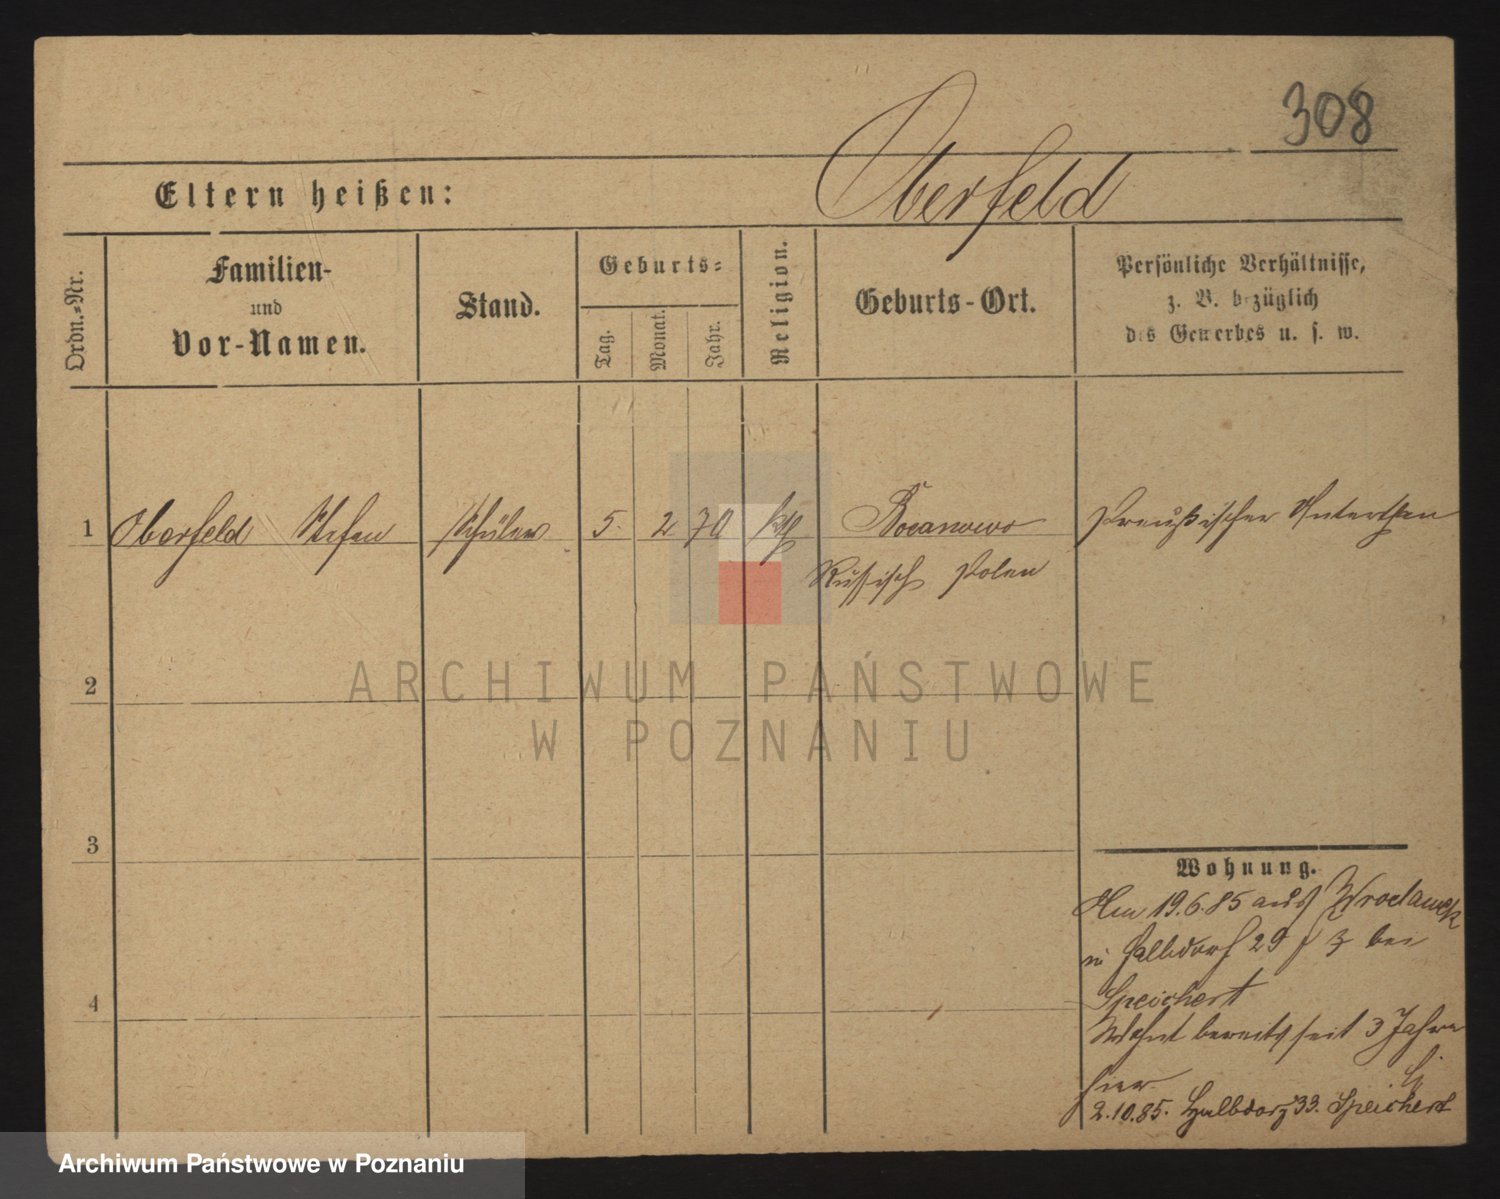 308
Oberfeld
Eltern heißen:
Ordn.-Nr.
Familien- und Vor-Namen.
Stand.
Geburts-
Tag. Monat. Jahr.
Religion.
Geburts-Ort.
Persönliche Verhältnisse,
z. B. bezüglich
des Gewerbes u. s. w.
1 Oberfeld Stefan Schüler 5. 2 70 kth Bocanowo Preußischer Unterthan
Russisch Polen
2
ARCHIWUM PAŃSTWOWE
W POZNANIU
3
Wohnung.
Am 19.6.85 aus Wroclawek
n Halbdorf 29 bei
Speichert
4
Wohnt bereits seit 3 Jahren
hier
2.10.85. Halbdorf 33. Speichert
Archiwum Państwowe w Poznaniu